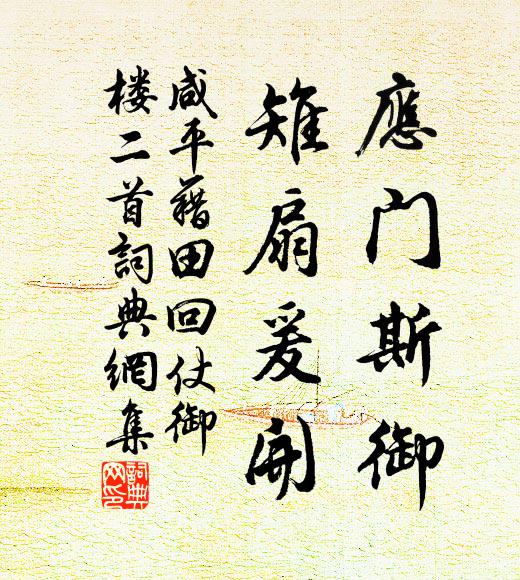 應门斯御
雉扇爰開
咸平藉田回仗御
楼二首詞典網集